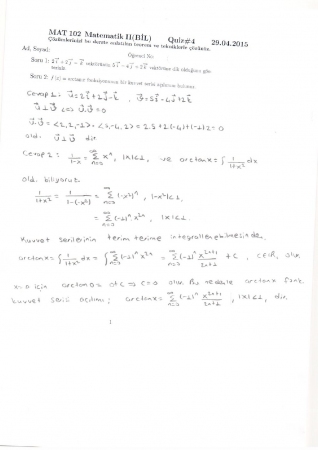 MAT 102 Matematik II(BİL) Quiz#4 29.04.2015
Çözümlerinizi bu derste anlatılan teorem ve tekniklerle çözünüz.
Ad, Soyad: Öğrenci No:
Soru 1: 2i⃗ + 2j⃗ − k⃗ vektörünün 5i⃗ − 4j⃗ + 2k⃗ vektörüne dik olduğunu gös-
teriniz.
Soru 2: fonksiyonunun bir kuvvet serisi açılımını bulunuz.
Cevap 1: u⃗ = 2i⃗ + 2j⃗ − k⃗ , v⃗ = 5i⃗ − 4j⃗ + 2k⃗
u⃗ ⊥ v⃗ <=> u⃗ . v⃗ = 0
u⃗ . v⃗ = <2, 2, -1> . <5, -4, 2> = 2.5 + 2(-4) + (-1)2 = 0
old. u⃗ ⊥ v⃗ dir.
Cevap 2: 1/(1-x) = ∑_{n=0}^{∞} x^n , |x|<1, ve arctanx = ∫ 1/(1+x²) dx
old. biliyoruz.
1/(1+x²) = 1/(1-(-x²)) = ∑_{n=0}^{∞} (-x²)^n , |-x²|<1,
= ∑_{n=0}^{∞} (-1)^n x^{2n} , |x|<1
Kuvvet serilerinin terim terime integrallenebilmesinden,
arctanx = ∫ 1/(1+x²) dx = ∫ ∑_{n=0}^{∞} (-1)^n x^{2n} = ∑_{n=0}^{∞} (-1)^n x^{2n+1}/(2n+1) + C , C∈R, olur
x=0 için arctan0 = 0+C => C=0 olur. Bu nedenle arctanx fonk.
kuvvet serisi açılımı; arctanx = ∑_{n=0}^{∞} (-1)^n x^{2n+1}/(2n+1) , |x|<1, dir.
1